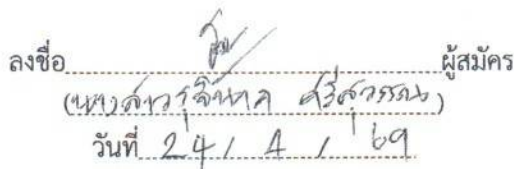 ลงชื่อ ผู้สมัคร
(นางสาวรุจิพาภา ศรีสุวรรณ)
วันที่ 24 / 4 / 69